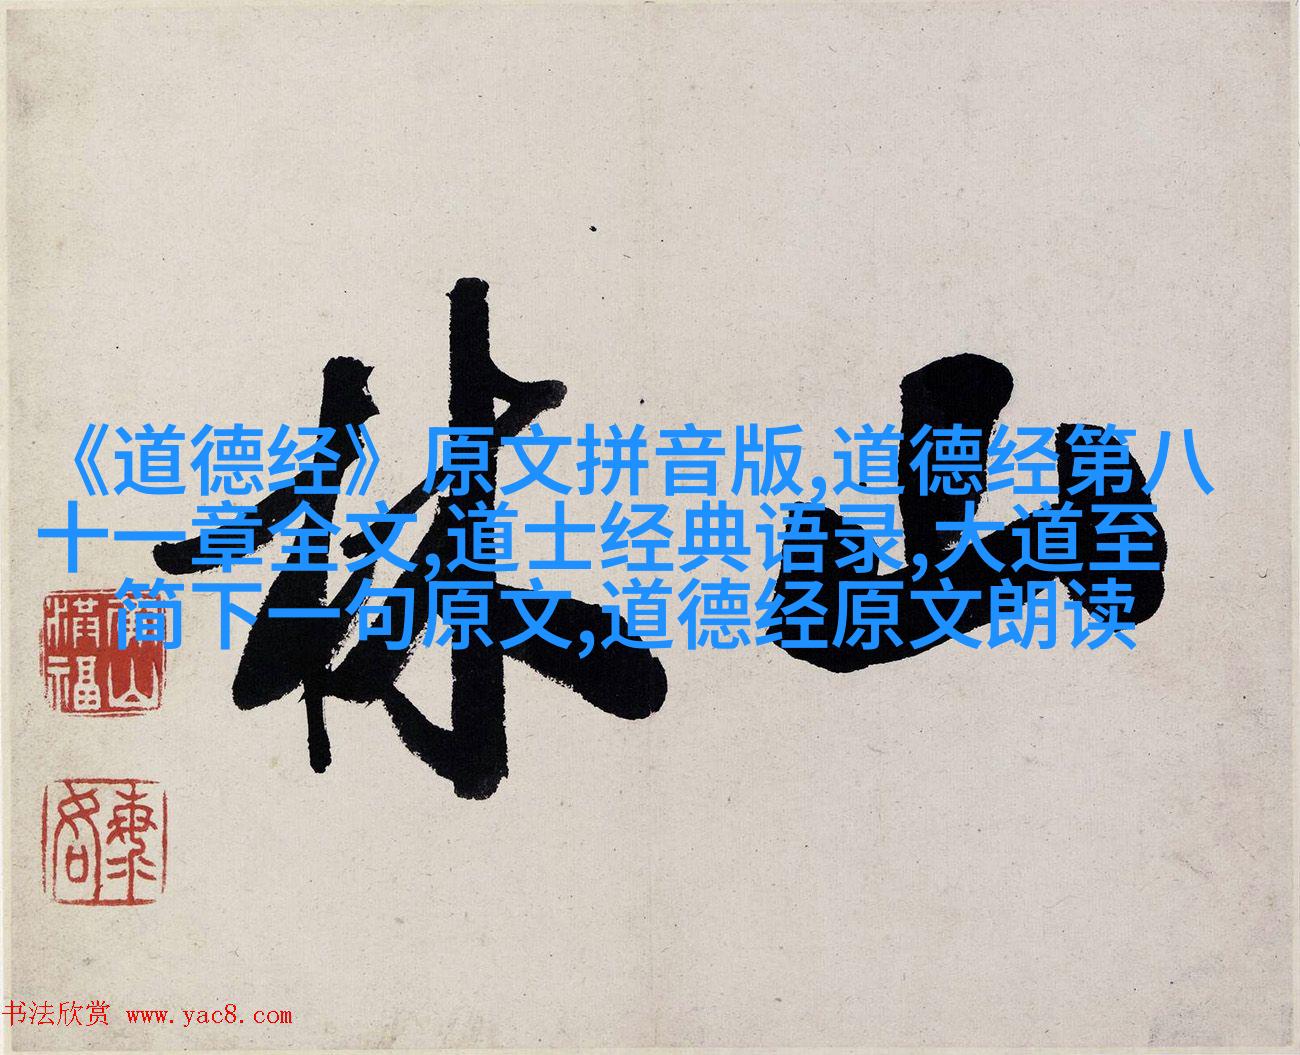 山林
《道德经》原文拼音版,道德经第八
十一章全文,道士经典语录,大道至
简下一句原文,道德经原文朗读
书法欣赏 www.yac8.com